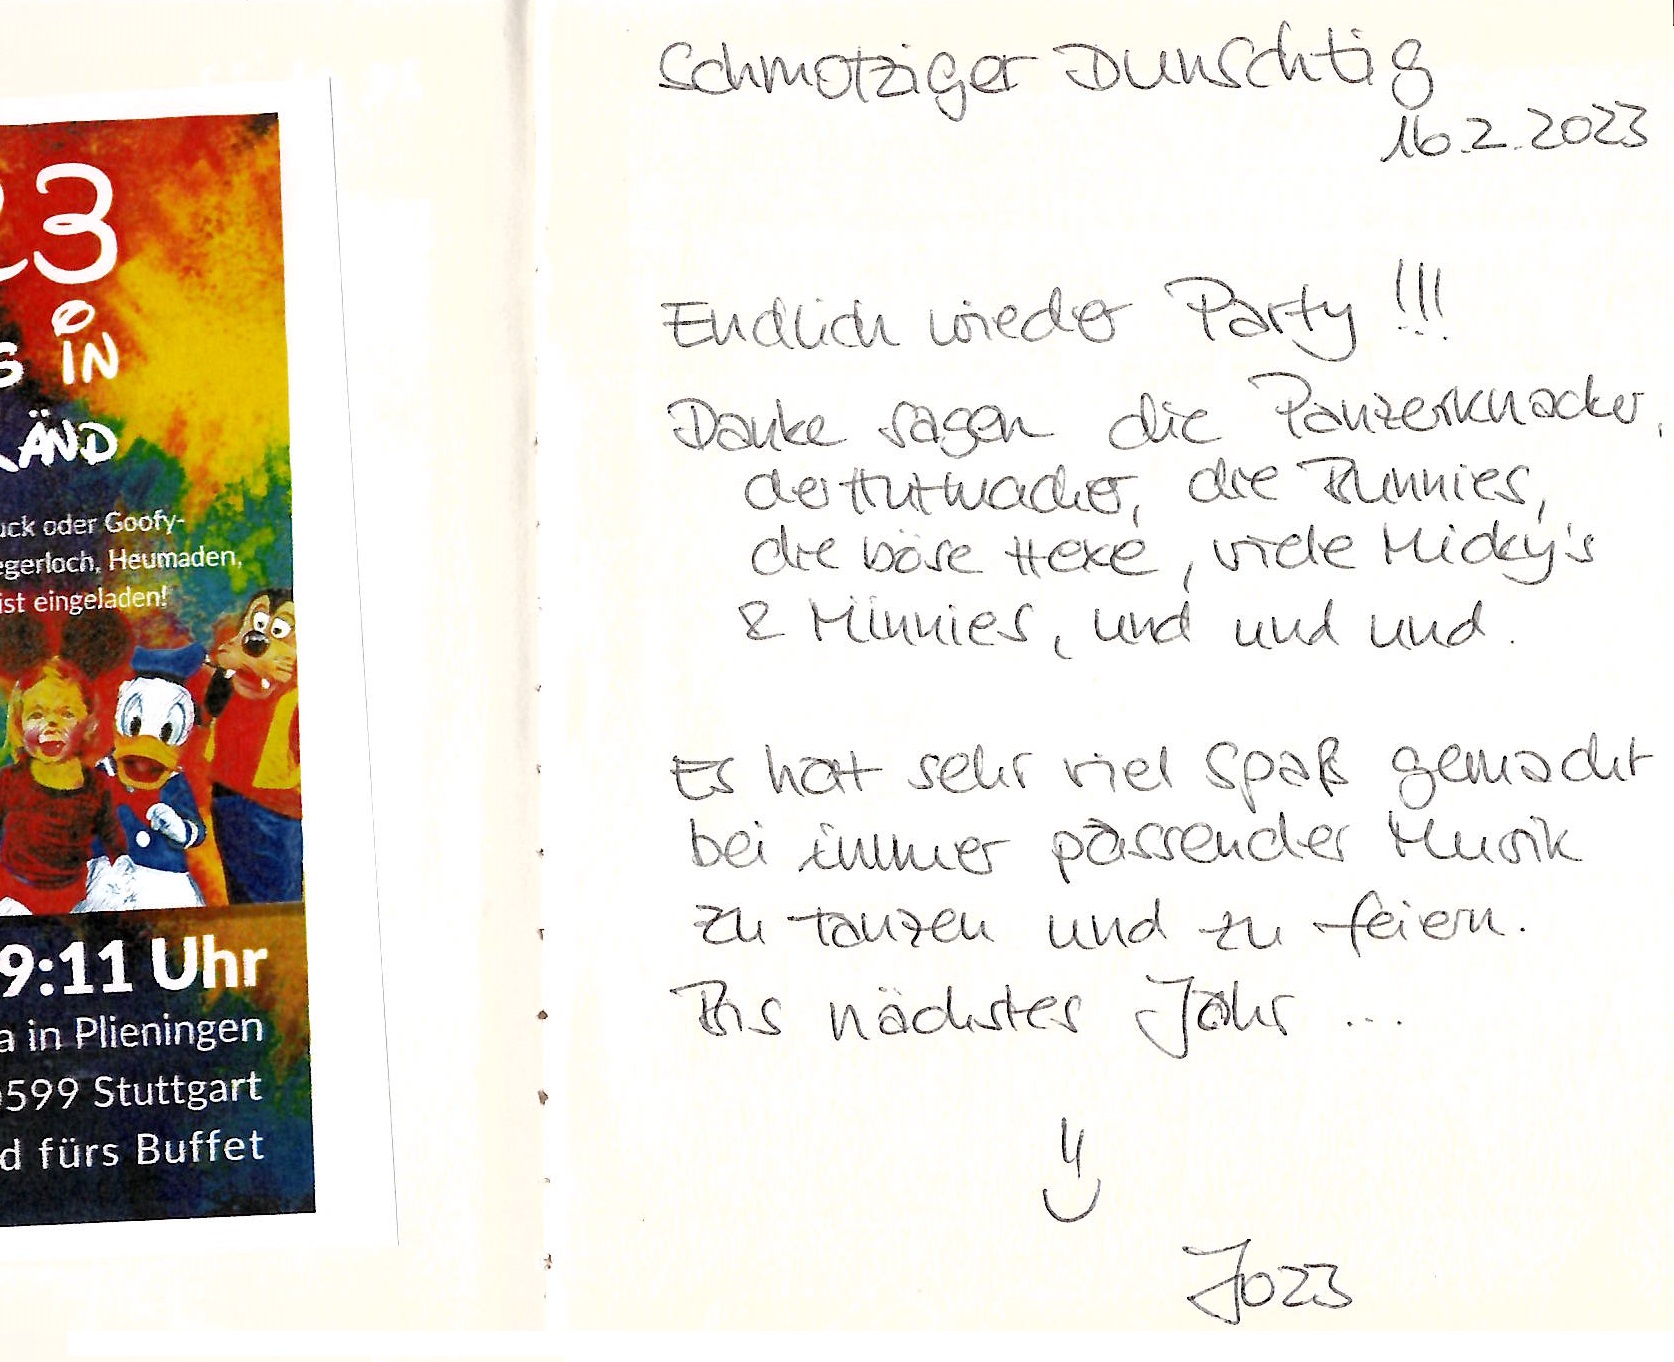 23
S IN
ÄND
uck oder Goofy-
egerloch, Heumaden,
ist eingeladen!
9:11 Uhr
a in Plieningen
0599 Stuttgart
d fürs Buffet
Schmotziger Dunschtig
16.2.2023
Endlich wieder Party !!!
Danke sagen die Panzerknacker,
der Hutmacher, die Bunnies,
die böse Hexe, viele Micky's
& Minnies, und und und.
Es hat sehr viel Spaß gemacht
bei immer passender Musik
zu tanzen und zu feiern.
Bis nächstes Jahr ...
Jo23